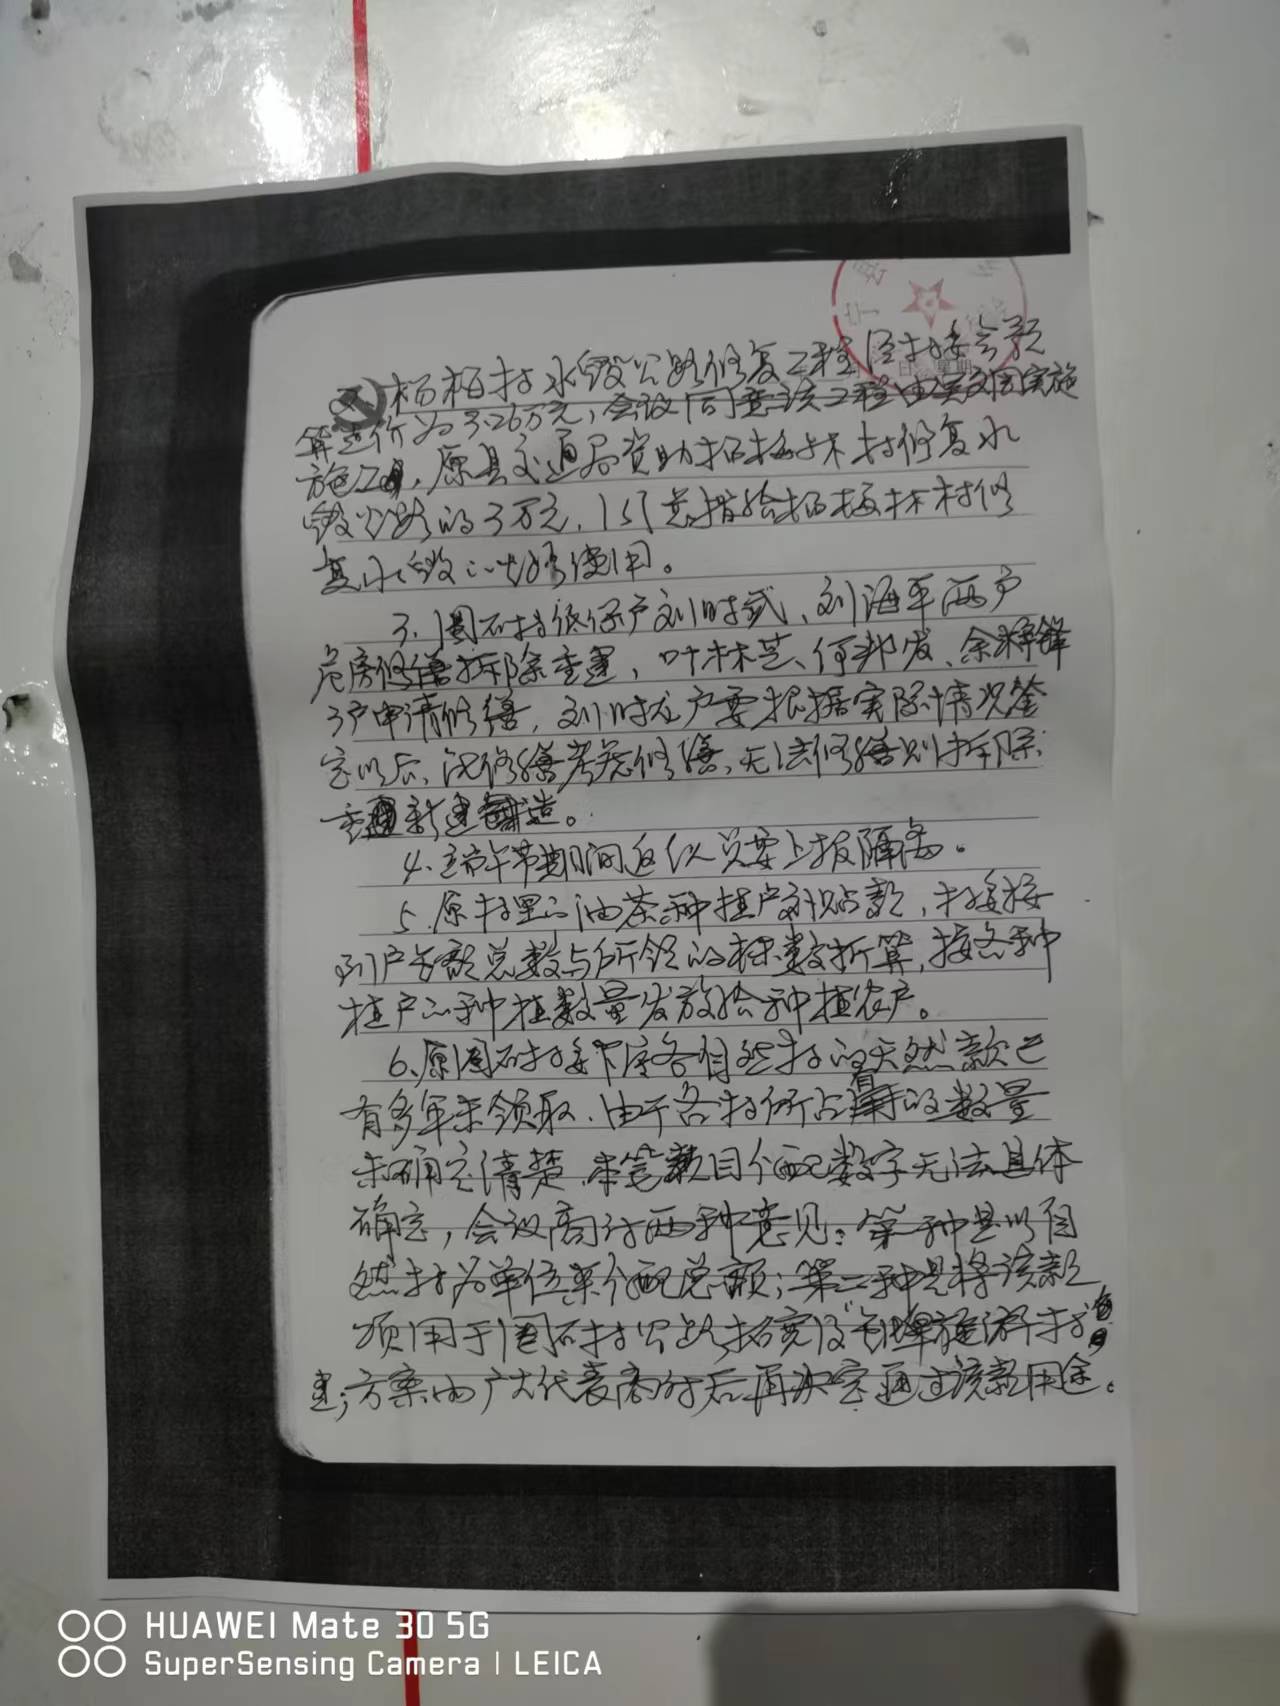 杨柏村水毁公路修复工程经村委会预
算造价为3.26万元,会议同意该工程由 实施
施工,原县交通局资助杨梅林村修复水
毁公路的3万元, 杨梅林村修
复水毁公路使用。
3.围石村低保户刘时武、刘海平两户
危房修缮拆除重建,叶林芝、何邦发、余祥锋
3户申请修缮,刘时龙户要根据实际情况鉴
定以后,能修缮考虑修缮,无法修缮则拆除
重新建造。
4.端午节期间返 人员要上报隔离。
5.原村里的油茶种植户补贴款,村委按
到户 总数与所领的株数折算,按各种
植户的种植数量发放给种植农户。
6.原围石村委下属各自然村的天然款已
有多年未领取,由于各村所占有的数量
未确定清楚,本笔款目分配数字无法具体
确定,会议商讨两种意见:第一种是以自
然村为单位来分配总额;第二种是将该款
项用于围石村公路拓宽及 旅游村
建;方案由广大代表商讨后再决定通过该款用途。
日 星期
HUAWEI Mate 30 5G
SuperSensing Camera | LEICA